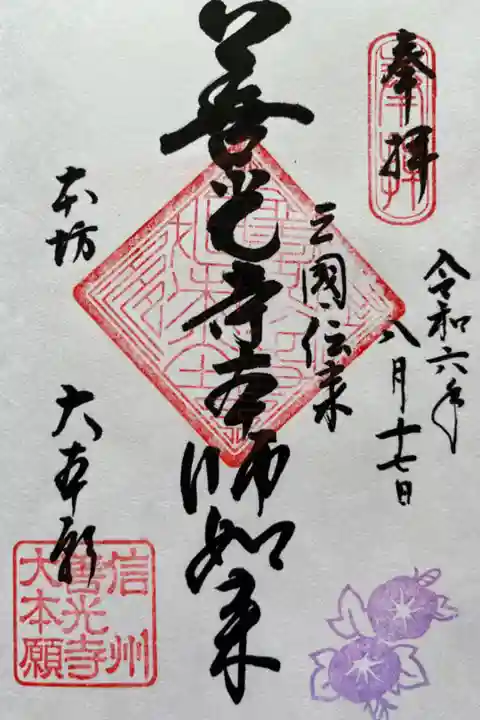 奉拝
奉拝
令和六年
八月十七日
三國伝来
善光寺本師如来
本坊
大本願
信州
善光寺
大本願